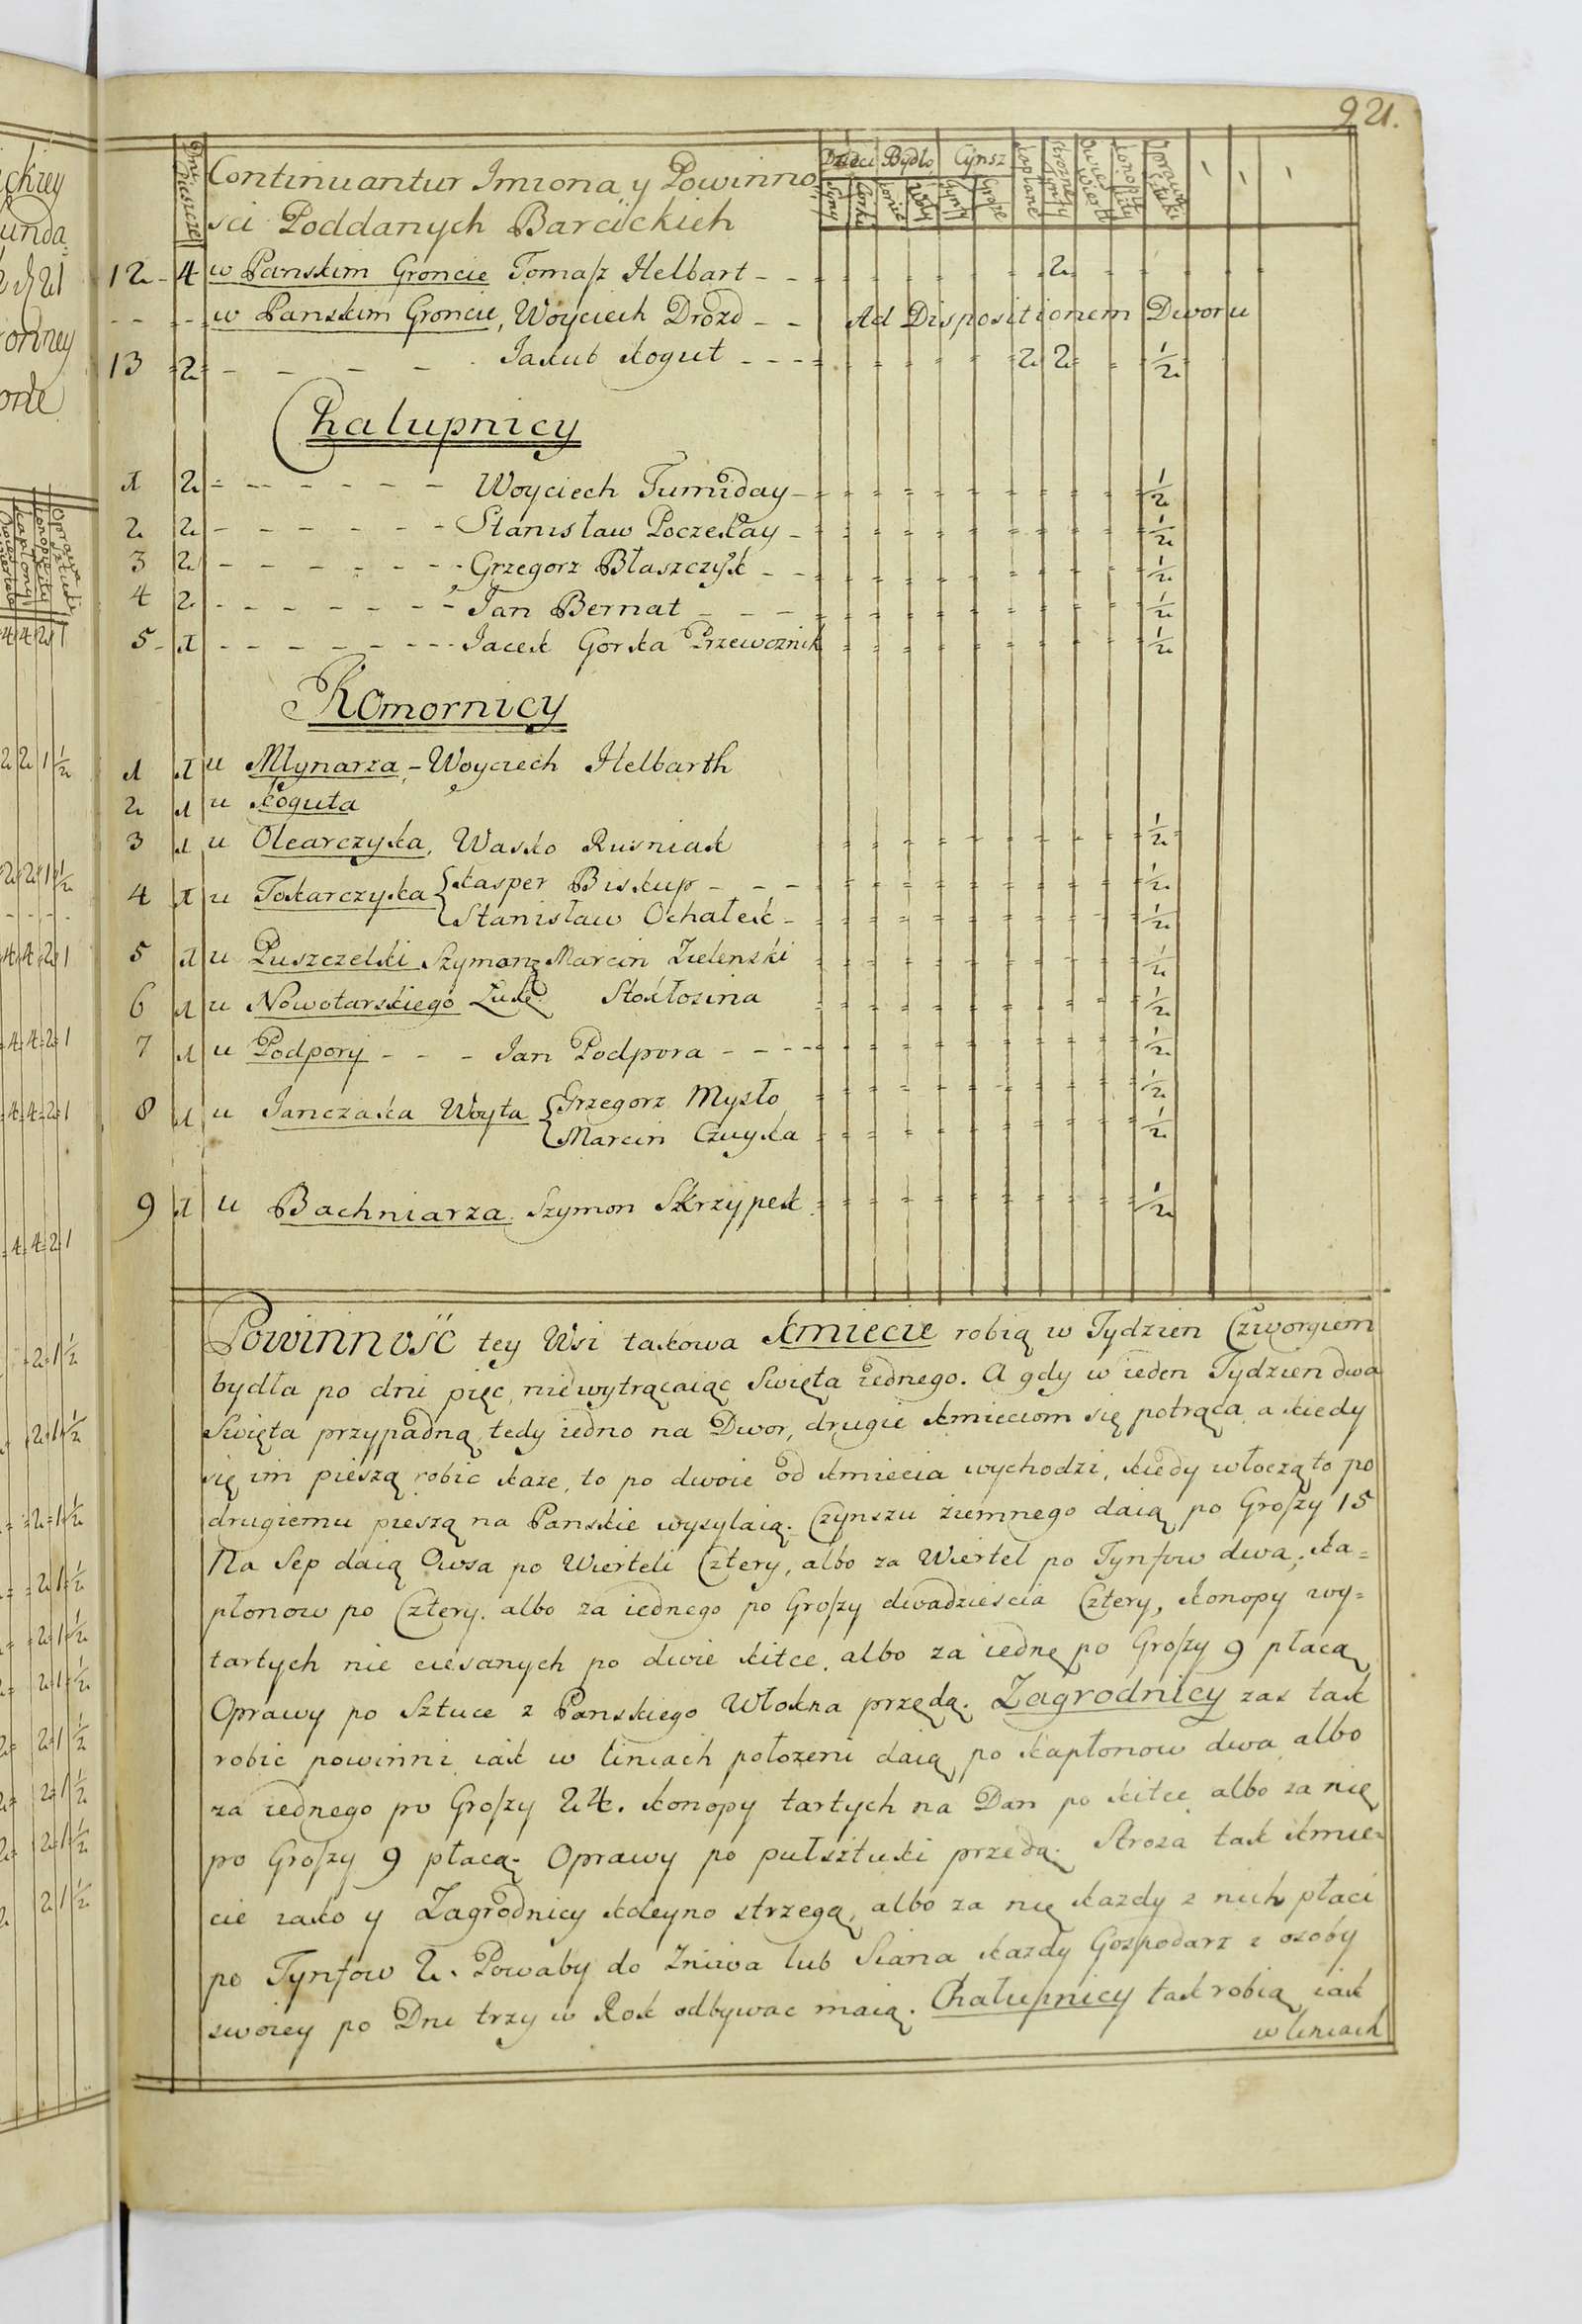 921.
Dni Piesze
Continuantur Imiona y Powinno
sci Poddanych Barcickich
Dzieci Bydło Cynsz
Syny Corki Konie Woły Tynfy Grosze Kapłane Strozne Tynfy Owies Wierteli Konopi Kity Oprawy Sztuki
12 - 4 w Panskim Groncie Tomasz Helbart - - 2
- - - - w Panskim Groncie, Woyciech Drozd - - Ad Dispositionem Dworu
13 2 - - - - Jakub Kogut - - - 2 2 1/2
Chalupnicy
1 2 - - - - - - Woyciech Tumiday - 1/2
2 2 - - - - - - - Stanisław Poczekay - 1/2
3 2 - - - - - - - Grzegorz Błaszczyk - - 1/2
4 2 - - - - - - - Jan Bernat - - - 1/2
5 - 1 - - - - - - - Jacek Gorka Przewoznik 1/2
Komornicy
1 1 u Młynarza - Woyciech Helbarth
2 1 u Koguta
3 1 u Olearczyka, Wasko Rusniak 1/2
4 1 u Tokarczyka { Kasper Biskup - - - 1/2
{ Stanisław Ochałek - 1/2
5 1 u Puszczelski Szymona Marcin Zielenski 1/2
6 1 u Nowotarskiego Stokłosina 1/2
7 1 u Podpory - - - Jan Podpora - - - - 1/2
8 1 u Janczaka Woyta { Grzegorz Mysło 1/2
{ Marcin Czuyka 1/2
9 1 u Bachniarza Szymon Skrzypek 1/2
Powinność tey Wsi takowa Kmiecie robią w Tydzien Czworgiem
bydła po dni pięc, niewytrącaiąc Swięta iednego. A gdy w ieden Tydzien dwa
Swięta przypadną, tedy iedno na Dwor, drugie Kmieciom się potrąca, a kiedy
się im pieszą robic kaze, to po dwoie od Kmiecia wychodzi, kiedy włoczą to po
drugiemu pieszą na Panskie wysylaią. Czynszu ziemnego daią po Groszy 15
Na Sep daią Owsa po Wierteli Cztery, albo za Wiertel po Tynfow dwa, Ka=
płonow po Cztery. albo za iednego po Groszy dwadziescia Cztery, Konopy wy=
tartych nie ciesanych po dwie kitce. albo za iednę po Groszy 9 płacą
Oprawy po Sztuce z Panskiego Włokna przędą. Zagrodnicy zas tak
robic powinni iak w liniach połozeni daią po Kapłonow dwa albo
za iednego po Groszy 24. Konopy tartych na Dan po kitce albo za nię
po Groszy 9 płacą. Oprawy po pułsztuki przędą. Stroza tak Kmie=
cie iako y Zagrodnicy koleyno strzegą, albo za nię kazdy z nich płaci
po Tynfow 2. Powaby do Zniwa lub Siana kazdy Gospodarz z osoby
swoiey po Dni trzy w Rok odbywac maią. Chałupnicy tak robią iak
w liniach